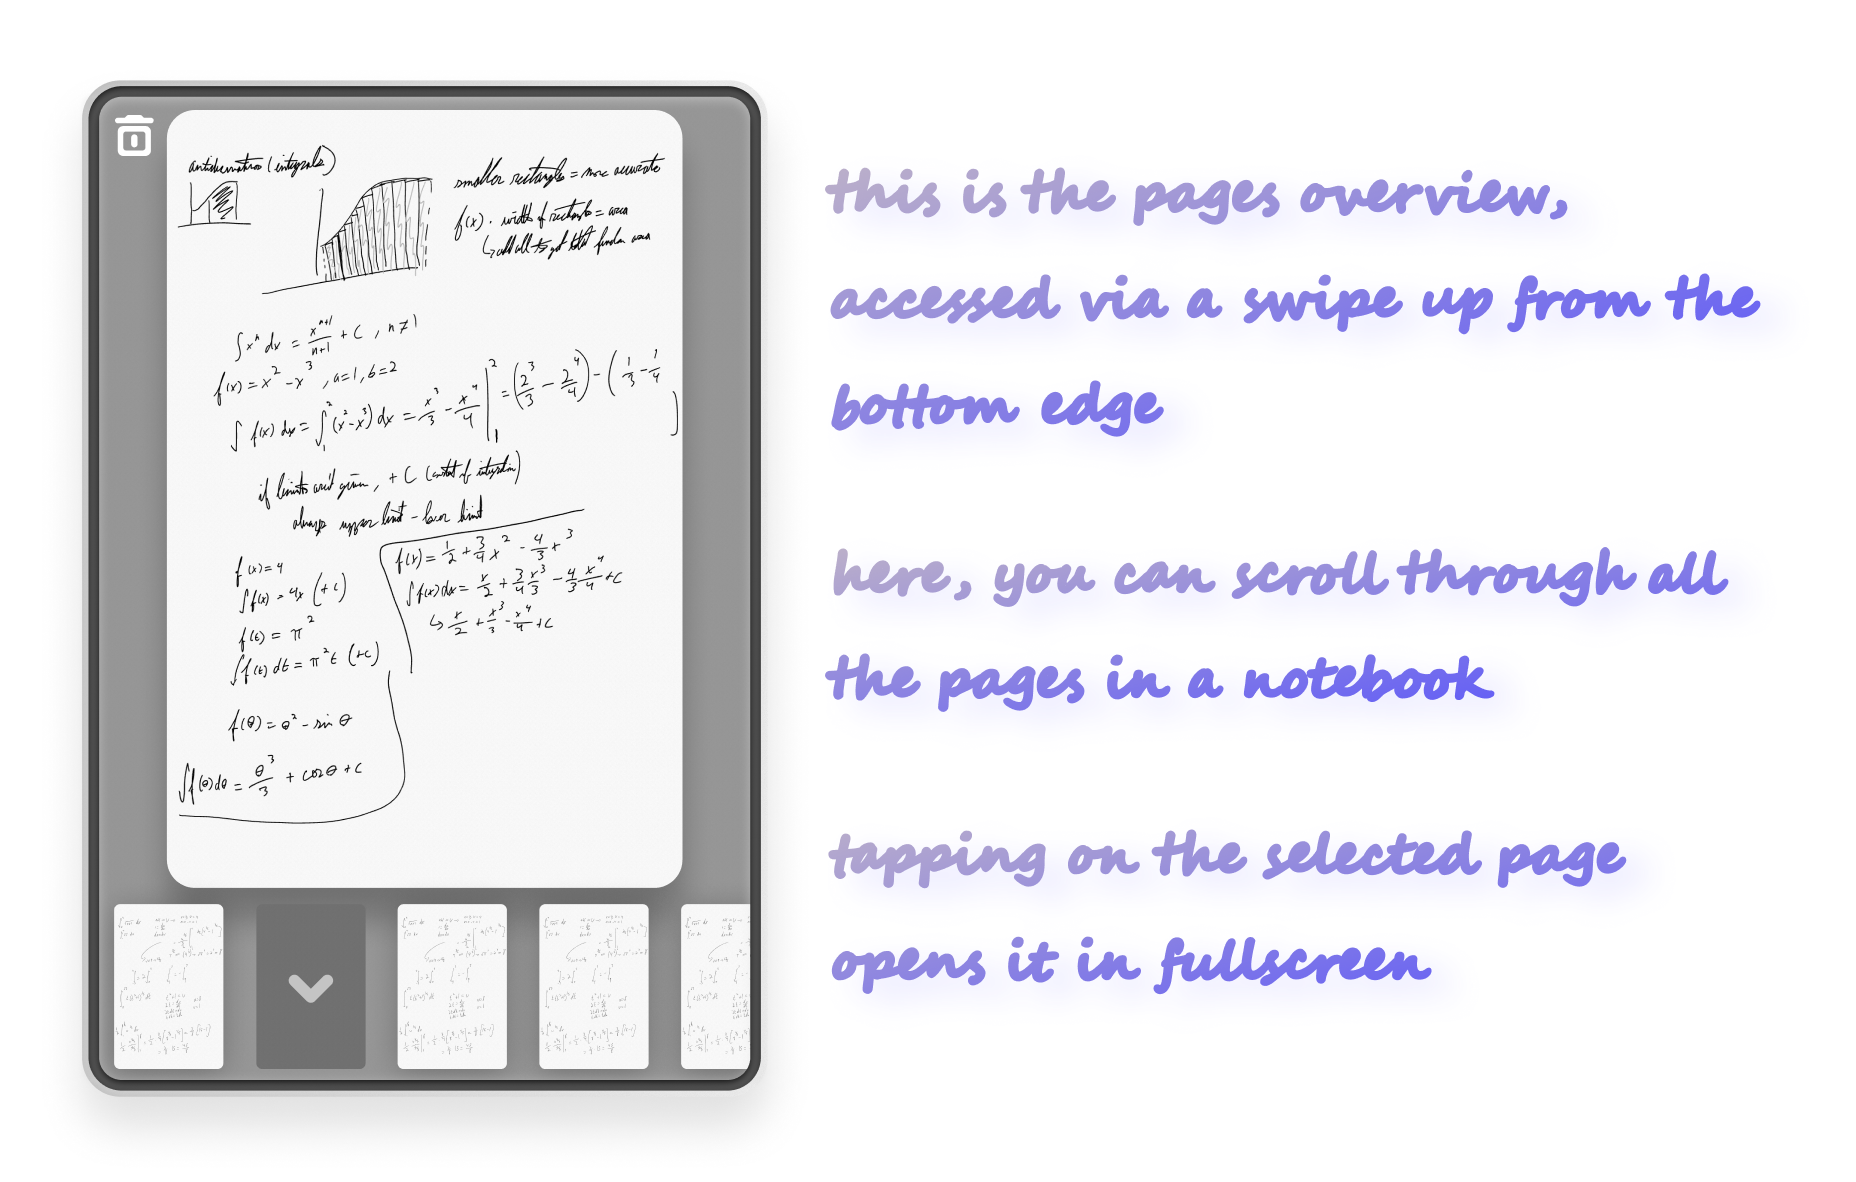 antiderivatives (integrals)
smaller rectangles = more accurate
f(x) · width of rectangle = area
↳ add all to get total function area
∫ xⁿ dx = xⁿ⁺¹/n+1 + C , n ≠ 1
f(x) = x² - x³ , a=1, b=2
∫ f(x) dx = ∫₁² (x² - x³) dx = x³/3 - x⁴/4 |₁² = (2³/3 - 2⁴/4) - (1/3 - 1/4
if limits aren't given, + C (constant of integration)
always upper limit - lower limit
f(x) = 4
∫ f(x) = 4x (+c)
f(t) = π²
∫ f(t) dt = π²t (+c)
f(θ) = θ² - sin θ
∫ f(θ) dθ = θ³/3 + cos θ + c
f(x) = 1/2 + 3/4 x² - 4/3 x³
∫ f(x) dx = x/2 + 3/4 x³/3 - 4/3 x⁴/4 + C
↳ x/2 + x³/3 - x⁴/4 + C
this is the pages overview,
accessed via a swipe up from the
bottom edge
here, you can scroll through all
the pages in a notebook
tapping on the selected page
opens it in fullscreen